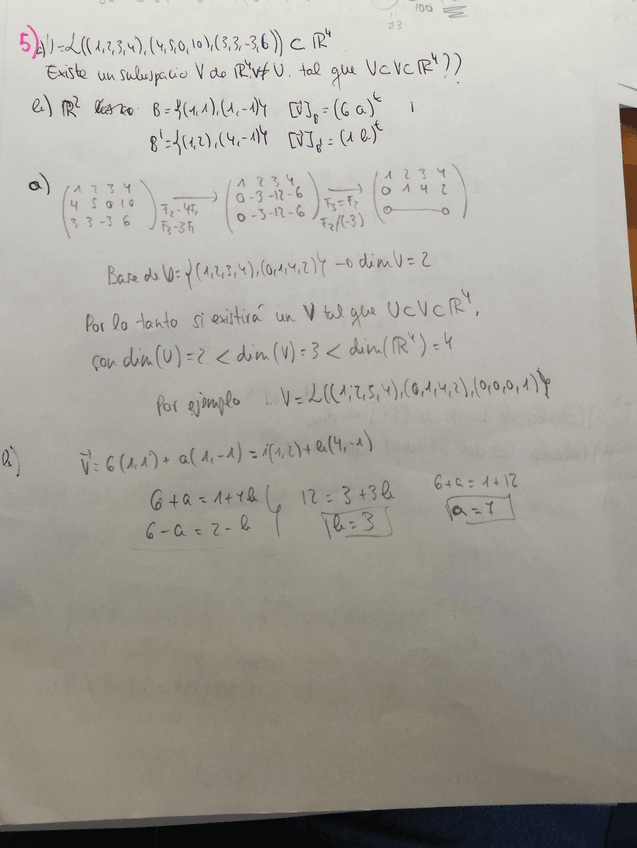 100
5) a) U=L((1,2,3,4),(4,5,0,10),(3,3,-3,6)) ⊂ ℝ⁴
Existe un subespacio V de ℝ⁴, V≠U, tal que U⊂V⊂ℝ⁴??
b) ℝ² B={(1,1),(1,-1)} [v⃗]_B=(6 a)^t
B'={(1,2),(4,-1)} [v⃗]_B'=(1 b)^t
a) (1 2 3 4 → (1 2 3 4 → (1 2 3 4
4 5 0 10 0 -3 -12 -6 0 1 4 2
3 3 -3 6) F₂-4F₁ 0 -3 -12 -6) F₃=F₂ 0 — 0)
F₃-3F₁ F₂/(-3)
Base de U={(1,2,3,4),(0,1,4,2)} → dim U=2
Por lo tanto si existirá un V tal que U⊂V⊂ℝ⁴,
con dim(U)=2 < dim(V)=3 < dim(ℝ⁴)=4
Por ejemplo V=L((1,2,3,4),(0,1,4,2),(0,0,0,1))
b) v⃗=6(1,1)+a(1,-1)=1(1,2)+b(4,-1)
6+a=1+4b } 12=3+3b 6+a=1+12
6-a=2-b b=3 a=7